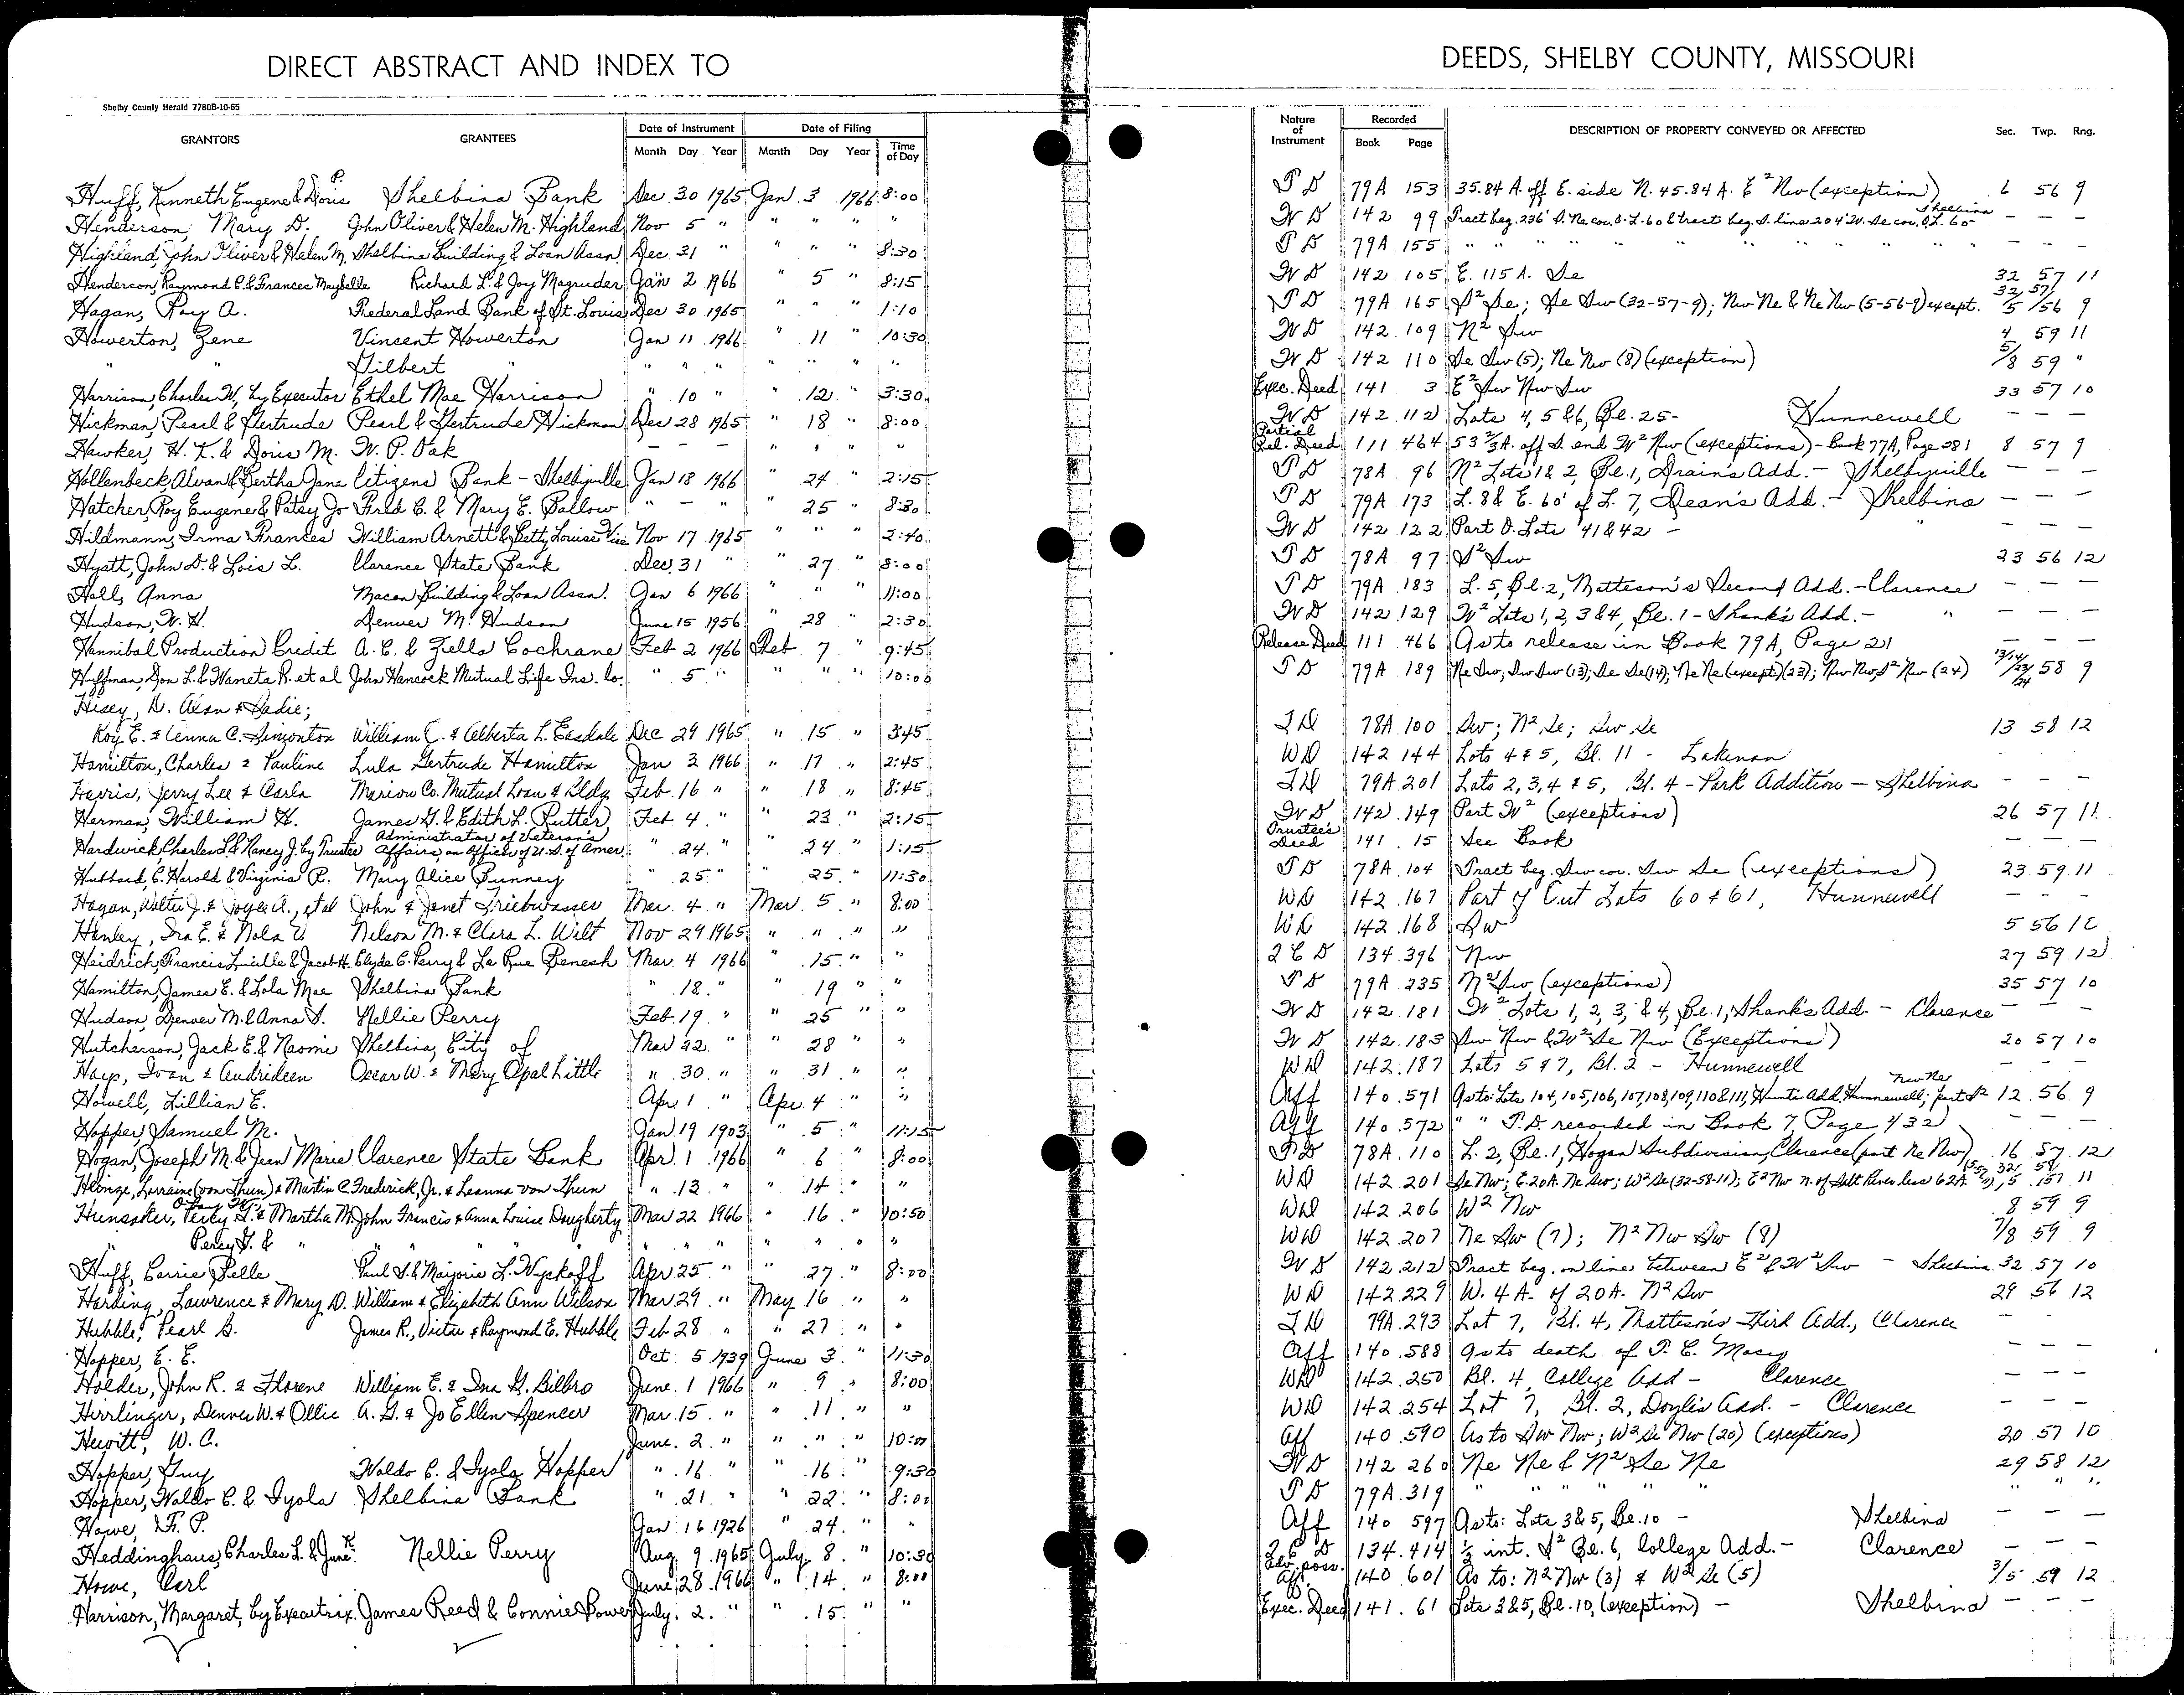 DIRECT ABSTRACT AND INDEX TO DEEDS, SHELBY COUNTY, MISSOURI
Shelby County Herald 7780B-10-65
GRANTORS GRANTEES Date of Instrument Month Day Year Date of Filing Month Day Year Time of Day Nature of Instrument Recorded Book Page DESCRIPTION OF PROPERTY CONVEYED OR AFFECTED Sec. Twp. Rng.
Huff, Kenneth Eugene & Doris P. Shelbina Bank Dec 30 1965 Jan 3 1966 8:00 T D 79A 153 35.84 A. off E. side N. 45.84 A. E² Nw (exception) 6 56 9
Henderson, Mary D. John Oliver & Helen M. Highland Nov 5 " " " " " W D 142 99 Tract beg. 236' S. Ne cor. O.L. 60 & tract beg. S. line 204' W. Se cor. O.L. 60 - Shelbina - - -
Highland, John Oliver & Helen M. Shelbina Building & Loan Assn Dec. 31 " " " " 8:30 T D 79A 155 " " " " " " " " - - -
Henderson, Raymond C. & Frances Maybelle Richard L. & Joy Magruder Jan 2 1966 " 5 " 8:15 W D 142 105 E. 115 A. Se 32 57 11
Hagan, Roy A. Federal Land Bank of St. Louis Dec 30 1965 " " " 1:10 T D 79A 165 S² Se; Se Sw (32-57-9); Nw Ne & Ne Nw (5-56-9) except. 32/5 57/56 9
Howerton, Gene Vincent Howerton Jan 11 1966 " 11 " 10:30 W D 142 109 N² Sw 4 59 11
" Gilbert " " " " " " " " W D 142 110 Se Sw (5); Ne Nw (8) (exception) 5/8 59 "
Harrison, Charles W. by Executor Ethel Mae Harrison " 10 " " 12 " 3:30 Exec. Deed 141 3 E² Sw Nw Sw 33 57 10
Hickman, Pearl & Gertrude Pearl & Gertrude Hickman Dec 28 1965 " 18 " 8:00 W D 142 112 Lots 4, 5 & 6, Bl. 25 - Hunnewell - - -
Hawker, H. K. & Doris M. W. P. Oak - - " " " " Partial Rel. Deed 111 464 53 ⅔ A. off S. end W² Nw (exceptions) - Book 77A, Page 281 8 57 9
Hollenbeck, Alvan & Bertha Jane Citizens Bank - Shelbyville Jan 18 1966 " 24 " 2:15 T D 78A 96 N² Lots 1 & 2, Bl. 1, Drain's Add. - Shelbyville - - -
Hatcher, Roy Eugene & Patsy Jo Fred C. & Mary E. Ballow " - " 25 " 8:30 T D 79A 173 L. 8 & E. 60' of L. 7, Dean's Add. - Shelbina - - -
Hildmann, Irma Frances William Arnett & Betty Louise Nov 17 1965 " " " 2:40 W D 142 122 Part O. Lots 41 & 42 - " - - -
Hyatt, John D. & Lois L. Clarence State Bank Dec. 31 " " 27 " 8:00 T D 78A 97 S² Sw 23 56 12
Hall, Anna Macon Building & Loan Assn. Jan 6 1966 " " " 11:00 T D 79A 183 L. 5, Bl. 2, Matteson's Second Add. - Clarence - - -
Hudson, W. H. Denver M. Hudson June 15 1956 " 28 " 2:30 W D 142 129 W² Lots 1, 2, 3 & 4, Bl. 1 - Shank's Add. - " - - -
Hannibal Production Credit A. C. & Zella Cochrane Feb 2 1966 Feb 7 " 9:45 Release Deed 111 466 As to release in Book 79A, Page 21 - - -
Huffman, Don L. & Waneta R. et al John Hancock Mutual Life Ins. Co. " 5 " " " " 10:00 T D 79A 189 Ne Sw; Sw Sw (13); Se Se (14); Ne Ne (except) (23); Nw Nw, S² Nw (24) 13/14/23/24 58 9
Hisey, D. Alan & Sadie;
Roy E. & Anna C. Simonton William C. & Alberta L. Easdale Dec 29 1965 " 15 " 3:45 T D 78A 100 Sw; N² Se; Sw Se 13 58 12
Hamilton, Charles & Pauline Lula Gertrude Hamilton Jan 2 1966 " 17 " 2:45 W D 142 144 Lots 4 & 5, Bl. 11 - Lakenan - - -
Harris, Jerry Lee & Carla Marion Co. Mutual Loan & Bldg Feb. 16 " " 18 " 8:45 T D 79A 201 Lots 2, 3, 4 & 5, Bl. 4 - Park Addition - Shelbina - - -
Herman, William H. James G. & Edith L. Rutter Feb 4 " " 23 " 2:15 W D 142 149 Part W² (exceptions) 26 57 11
Hardwick, Charles L. & Nancy J. by Trustee Administrator of Veteran's Affairs, an Officer of U.S. of Amer. " 24 " " 24 " 1:15 Trustee's Deed 141 15 See Book - - -
Hubbard, C. Harold & Virginia R. Mary Alice Bunney " 25 " " 25 " 11:30 T D 78A 104 Tract beg. Sw cor. Sw Se (exceptions) 23 59 11
Hagan, Walter J. & Joyce A., et al John & Janet Triebwasser Mar. 4 " Mar. 5 " 8:00 W D 142 167 Part of Out Lots 60 & 61, Hunnewell - - -
Henley, Ira E. & Nola V. Nelson M. & Clara L. Wilt Nov 29 1965 " " " " W D 142 168 Sw 5 56 10
Heidrich, Francis Lucille & Jacob H. Clyde C. Perry & La Rue Benesh Mar. 4 1966 " 15 " " Q C D 134 396 Nw 27 59 12
Hamilton, James E. & Lola Mae Shelbina Bank " 18 " " 19 " " T D 79A 235 N² Sw (exceptions) 35 57 10
Hudson, Denver M. & Anna S. Nellie Perry Feb. 19 " " 25 " " W D 142 181 W² Lots 1, 2, 3, & 4, Bl. 1, Shank's Add - Clarence - - -
Hutcherson, Jack E. & Naomi Shelbina, City of Mar 22 " " 28 " " W D 142 183 Sw Nw & W² Se Nw (Exceptions) 20 57 10
Hays, Ivan & Audrideen Oscar W. & Mary Opal Little " 30 " " 31 " " W D 142 187 Lots 5 & 7, Bl. 2 - Hunnewell - - -
Howell, Lillian E. Apr. 1 " Apr. 4 " " Aff 140 571 As to: Lots 104, 105, 106, 107, 108, 109, 110 & 111, Hunt's Add. Hunnewell; part S² Nw Ne 12 56 9
Hopper, Samuel M. Jan 19 1903 " 5 " 11:15 Aff 140 572 " " T.D. recorded in Book 7, Page 432 - -
Hogan, Joseph M. & Jean Marie Clarence State Bank Apr. 1 1966 " 6 " 8:00 T D 78A 110 L. 2, Bl. 1, Hogan Subdivision, Clarence (part Ne Nw) 16 57 12
Lorraine (von Thun) & Martin C. Frederick, Jr. & Leanna von Thun " 13 " " 14 " " W D 142 201 Se Nw; E. 20 A. Ne Sw; W² Se (32-58-11); E² Nw n. of Salt River less 62 A. 32/5 58/57 11
Hunsaker, Perky T. & Martha M. John Francis & Anna Louise Dougherty Mar 22 1966 " 16 " 10:50 W D 142 206 W² Nw 8 59 9
" Percy T. & " " " " " " " " " " W D 142 207 Ne Sw (7); N² Nw Sw (8) 7/8 59 9
Huff, Carrie Belle Paul S. & Marjorie L. Wyckoff Apr 25 " " 27 " 8:00 W D 142 212 Tract beg. on line between E² & W² Sw - Shelbina 32 57 10
Harding, Lawrence & Mary D. William & Elizabeth Ann Wilson Mar 29 " May 16 " " W D 142 229 W. 4 A. of 20 A. N² Sw 29 56 12
Hubble, Pearl B. James R., Victor & Raymond E. Hubble Feb 28 " " 27 " " T D 79A 293 Lot 7, Bl. 4, Matteson's Third Add., Clarence - - -
Hopper, E. E. Oct. 5 1939 June 3 " 11:30 Aff 140 588 As to death of T. C. Macy - - -
Holder, John R. & Florene William E. & Ina G. Bilbro June 1 1966 " 9 " 8:00 W D 142 250 Bl. 4, College Add - Clarence - - -
Hirrlinger, Denver W. & Ollie A. G. & Jo Ellen Spencer Mar 15 " " 11 " " W D 142 254 Lot 7, Bl. 2, Doyle's Add. - Clarence - - -
Hewitt, W. C. June 2 " " " " 10:00 Aff 140 590 As to Sw Nw; W² Se Nw (20) (exceptions) 20 57 10
Hopper, Guy Waldo C. & Iyola Hopper " 16 " " 16 " 9:30 W D 142 260 Ne Ne & N² Se Ne 29 58 12
Hopper, Waldo C. & Iyola Shelbina Bank " 21 " " 22 " 8:00 T D 79A 319 " " " " " " " "
Howe, F. P. Jan 16 1926 " 24 " " Aff 140 597 As to: Lots 3 & 5, Bl. 10 - Shelbina - - -
Heddinghaus, Charles L. & June K. Nellie Perry Aug. 9 1965 July 8 " 10:30 Q C D 134 414 ½ int. S² Bl. 6, College Add. - Clarence - - -
Howe, Carl June 28 1966 " 14 " 8:00 Adv. poss. Aff. 140 601 As to: N² Nw (3) & W² Se (5) 3/5 59 12
Harrison, Margaret, by Executrix James Reed & Connie Power July 2 " " 15 " " Exec. Deed 141 61 Lots 3 & 5, Bl. 10, (exception) - Shelbina - - -